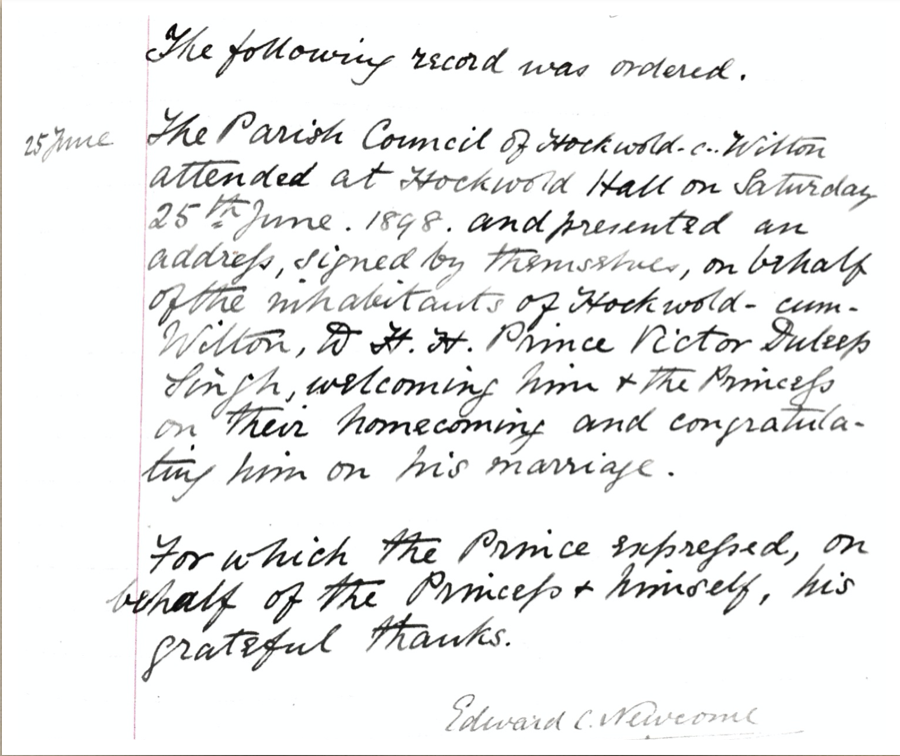 The following record was ordered.
25 June
The Parish Council of Hockwold-c-Wilton
attended at Hockwold Hall on Saturday
25th June. 1898. and presented an
address, signed by themselves, on behalf
of the inhabitants of Hockwold-cum-
Wilton, to H. H. Prince Victor Duleep
Singh, welcoming him & the Princess
on their homecoming and congratula-
ting him on his marriage.
For which the Prince expressed, on
behalf of the Princess & himself, his
grateful thanks.
Edward C. Newcome